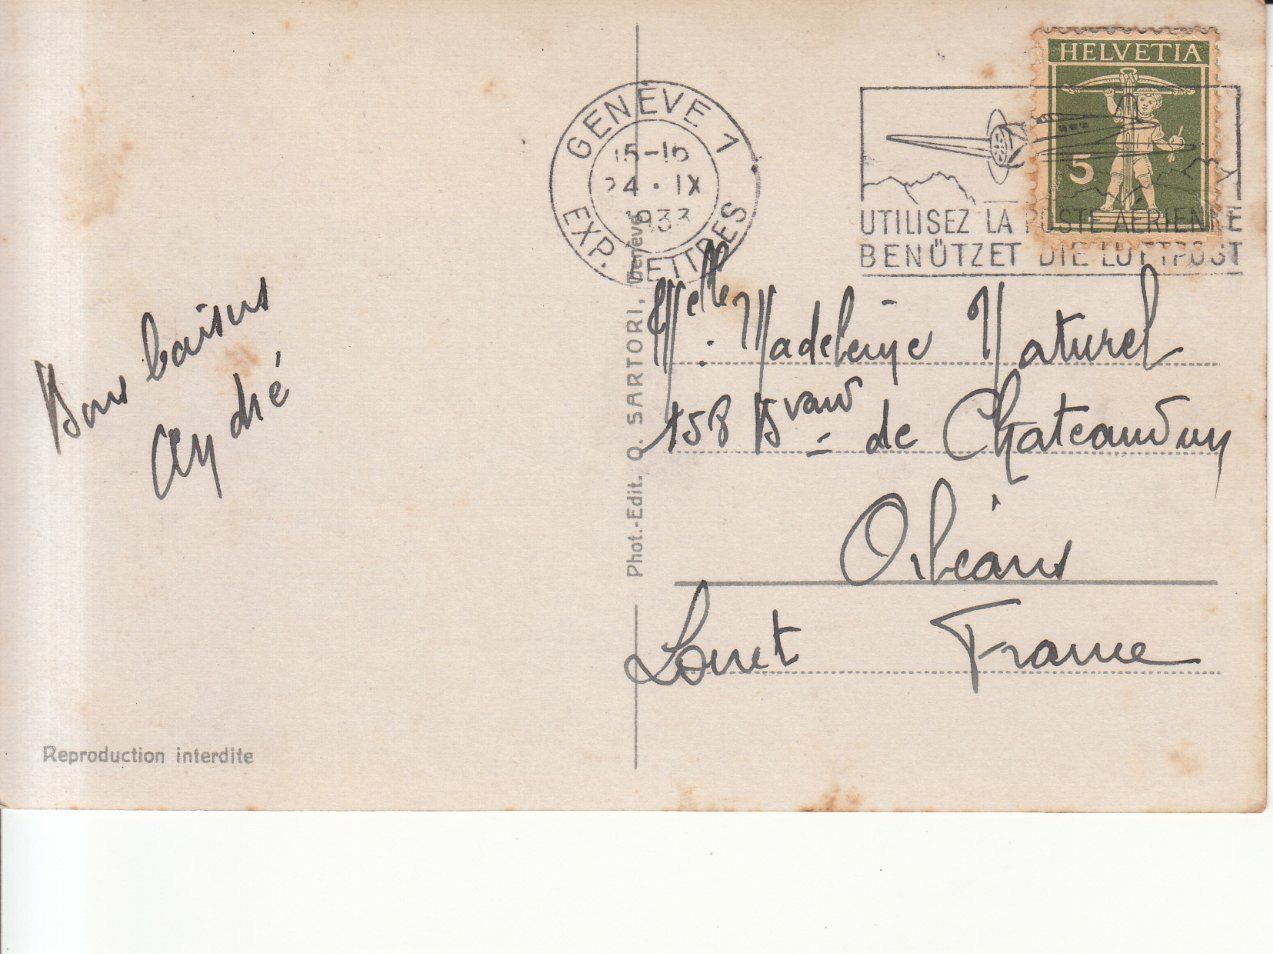 Bons baisers
André
Reproduction interdite
Phot.-Edit. O. SARTORI, Genève
GENÈVE 1
15-16
24·IX
1933
EXP. LETTRES
HELVETIA
5
UTILISEZ LA POSTE AÉRIENNE
BENÜTZET DIE LUFTPOST
Melle Madeleine Naturel
158 Bvard de Chateaudun
Orléans
Loiret France